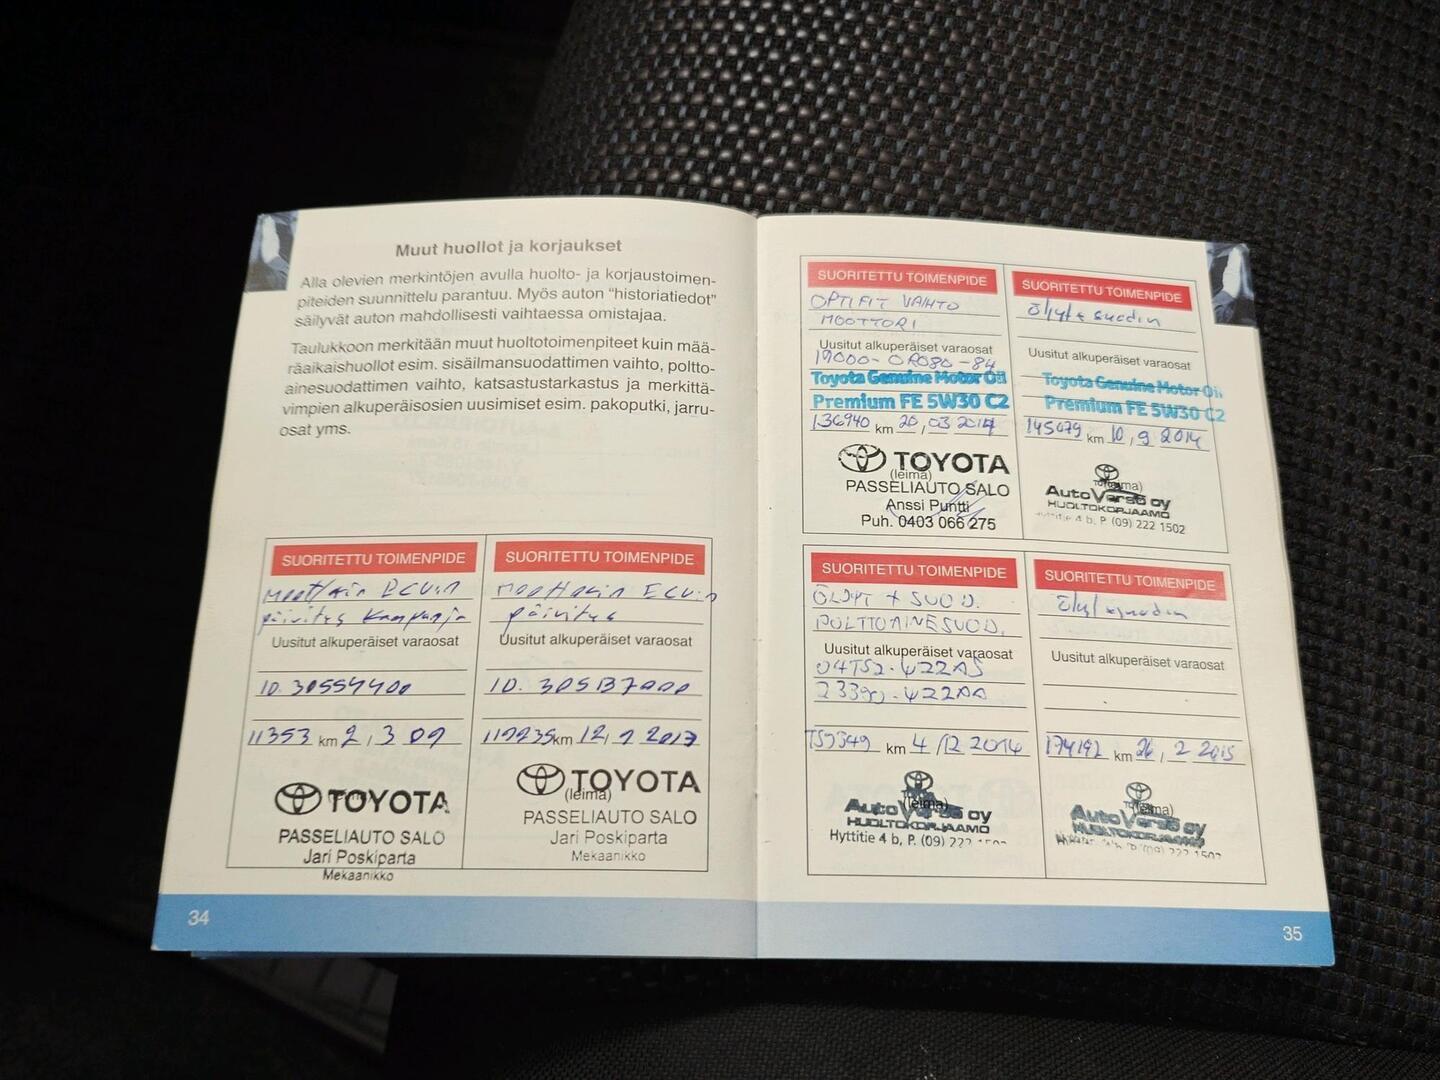 Muut huollot ja korjaukset
Alla olevien merkintöjen avulla huolto- ja korjaustoimen-
piteiden suunnittelu parantuu. Myös auton "historiatiedot"
säilyvät auton mahdollisesti vaihtaessa omistajaa.
Taulukkoon merkitään muut huoltotoimenpiteet kuin mää-
räaikaishuollot esim. sisäilmansuodattimen vaihto, poltto-
ainesuodattimen vaihto, katsastustarkastus ja merkittä-
vimpien alkuperäisosien uusimiset esim. pakoputki, jarru-
osat yms.
SUORITETTU TOIMENPIDE
Moottorin ECU:n
päivitys kampanja
Uusitut alkuperäiset varaosat
ID. 30554400
11353 km 2, 3 09
TOYOTA
PASSELIAUTO SALO
Jari Poskiparta
Mekaanikko
SUORITETTU TOIMENPIDE
Moottorin ECU:n
päivitys
Uusitut alkuperäiset varaosat
ID. 305B7000
km 12, 2013
TOYOTA
(leima)
PASSELIAUTO SALO
Jari Poskiparta
Mekaanikko
34
SUORITETTU TOIMENPIDE
OPTIFIT VAIHTO
MOOTTORI
Uusitut alkuperäiset varaosat
19000-0R080-84
Toyota Genuine Motor Oil
Premium FE 5W30 C2
136940 km 20, 03 2014
TOYOTA
(leima)
PASSELIAUTO SALO
Anssi Puntti
Puh. 0403 066 275
SUORITETTU TOIMENPIDE
Öljyt + suodin
Uusitut alkuperäiset varaosat
Toyota Genuine Motor Oil
Premium FE 5W30 C2
145079 km 10, 9 2014
AutoVerso oy
HUOLTOKORJAAMO
Hyttitie 4 b, P. (09) 222 1502
SUORITETTU TOIMENPIDE
ÖLJYT + SUOD.
POLTTOAINESUOD.
Uusitut alkuperäiset varaosat
km 4 /12 2014
(leima)
AutoVerso oy
HUOLTOKORJAAMO
Hyttitie 4 b, P. (09) 222
SUORITETTU TOIMENPIDE
Öljyt + suodin
Uusitut alkuperäiset varaosat
174192 km 26, 2 2015
AutoVerso oy
HUOLTOKORJAAMO
35